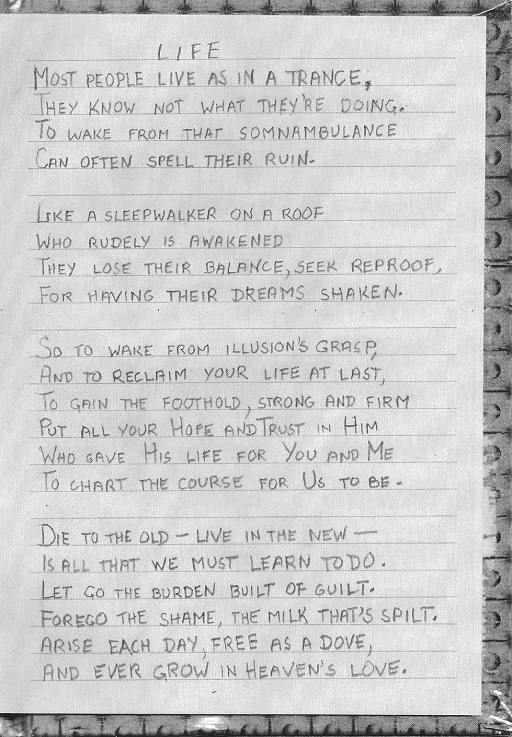 LIFE
MOST PEOPLE LIVE AS IN A TRANCE,
THEY KNOW NOT WHAT THEY'RE DOING.
TO WAKE FROM THAT SOMNAMBULANCE
CAN OFTEN SPELL THEIR RUIN.
LIKE A SLEEPWALKER ON A ROOF
WHO RUDELY IS AWAKENED
THEY LOSE THEIR BALANCE, SEEK REPROOF,
FOR HAVING THEIR DREAMS SHAKEN.
SO TO WAKE FROM ILLUSION'S GRASP,
AND TO RECLAIM YOUR LIFE AT LAST,
TO GAIN THE FOOTHOLD, STRONG AND FIRM
PUT ALL YOUR HOPE AND TRUST IN HIM
WHO GAVE HIS LIFE FOR YOU AND ME
TO CHART THE COURSE FOR US TO BE.
DIE TO THE OLD – LIVE IN THE NEW –
IS ALL THAT WE MUST LEARN TO DO.
LET GO THE BURDEN BUILT OF GUILT.
FOREGO THE SHAME, THE MILK THAT'S SPILT.
ARISE EACH DAY, FREE AS A DOVE,
AND EVER GROW IN HEAVEN'S LOVE.